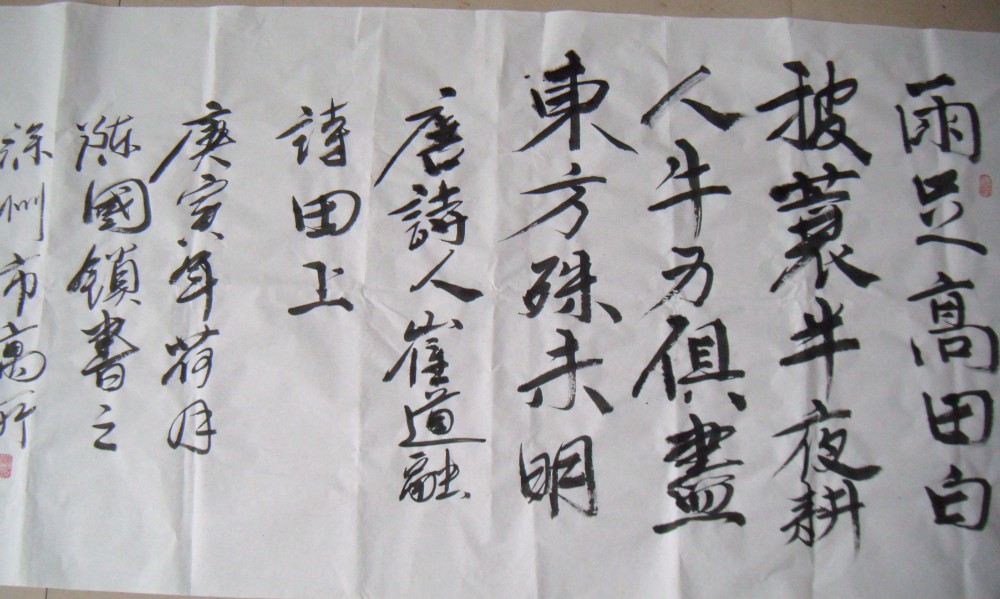 雨足高田白
披蓑半夜耕
人牛力俱盡
東方殊未明
唐詩人崔道融
詩田上
庚寅年荷月
陳國鎖書之
徐州市寓所